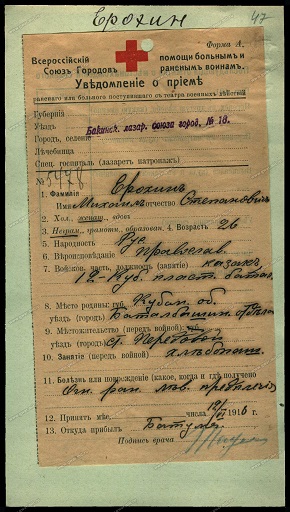 Ерохин
47
Форма А.
Всероссійскій Союзъ Городовъ
помощи больнымъ и раненымъ воинамъ.
Увѣдомленіе о пріемѣ
раненаго или больного поступившаго съ театра военныхъ дѣйствій
Губернія
Уѣздъ
Городъ, селеніе
Бакинск. лазар. союза город. № 18.
Лѣчебница
Спец. госпиталь (лазаретъ патронажъ)
№ 5478
1. Фамилія Ерохинъ
Имя Михаилъ отчество Степановичъ
2. Хол., женат., вдовъ
3. Неграм., грамотн., образован. 4. Возрастъ 26
5. Народность Рус
6. Вѣроисповѣданіе Православ
7. Войсков. часть, должность (занятіе) казакъ
12-Куб. пласт. батал.
8. Мѣсто родины: губ. Кубан. об.
уѣздъ (городъ) Баталпашин. отдѣла
9. Мѣстожительство (передъ войной):
уѣздъ (городъ) ст. Передовой
10. Занятіе (передъ войной) хлѣбопаш.
11. Болѣзнь или поврежденіе (какое, когда и гдѣ получено
Огн. ран. лѣв. предплечія
12. Принятъ мнѣ числа 191 6 г.
13. Откуда прибылъ Батума
Подпись врача